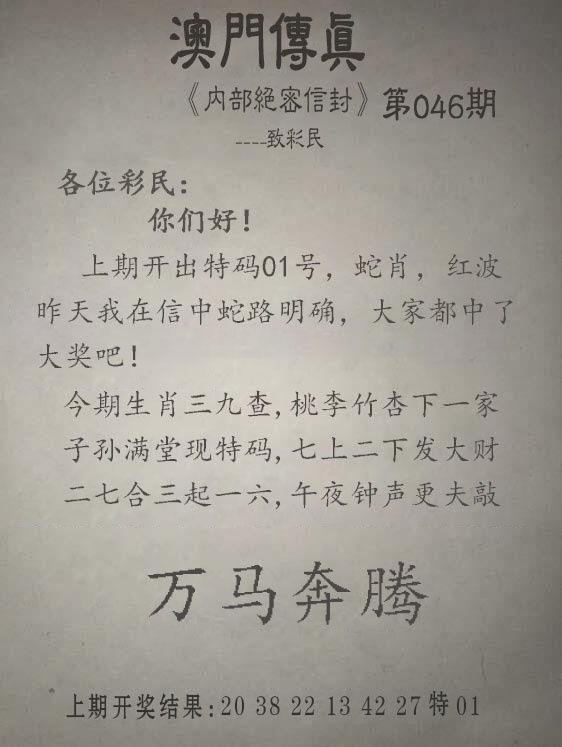 澳門傳眞
《内部絕密信封》第046期
----致彩民
各位彩民：
你们好！
上期开出特码01号，蛇肖，红波
昨天我在信中蛇路明确，大家都中了
大奖吧！
今期生肖三九查,桃李竹杏下一家
子孙满堂现特码,七上二下发大财
二七合三起一六,午夜钟声更夫敲
万马奔腾
上期开奖结果:20 38 22 13 42 27 特 01